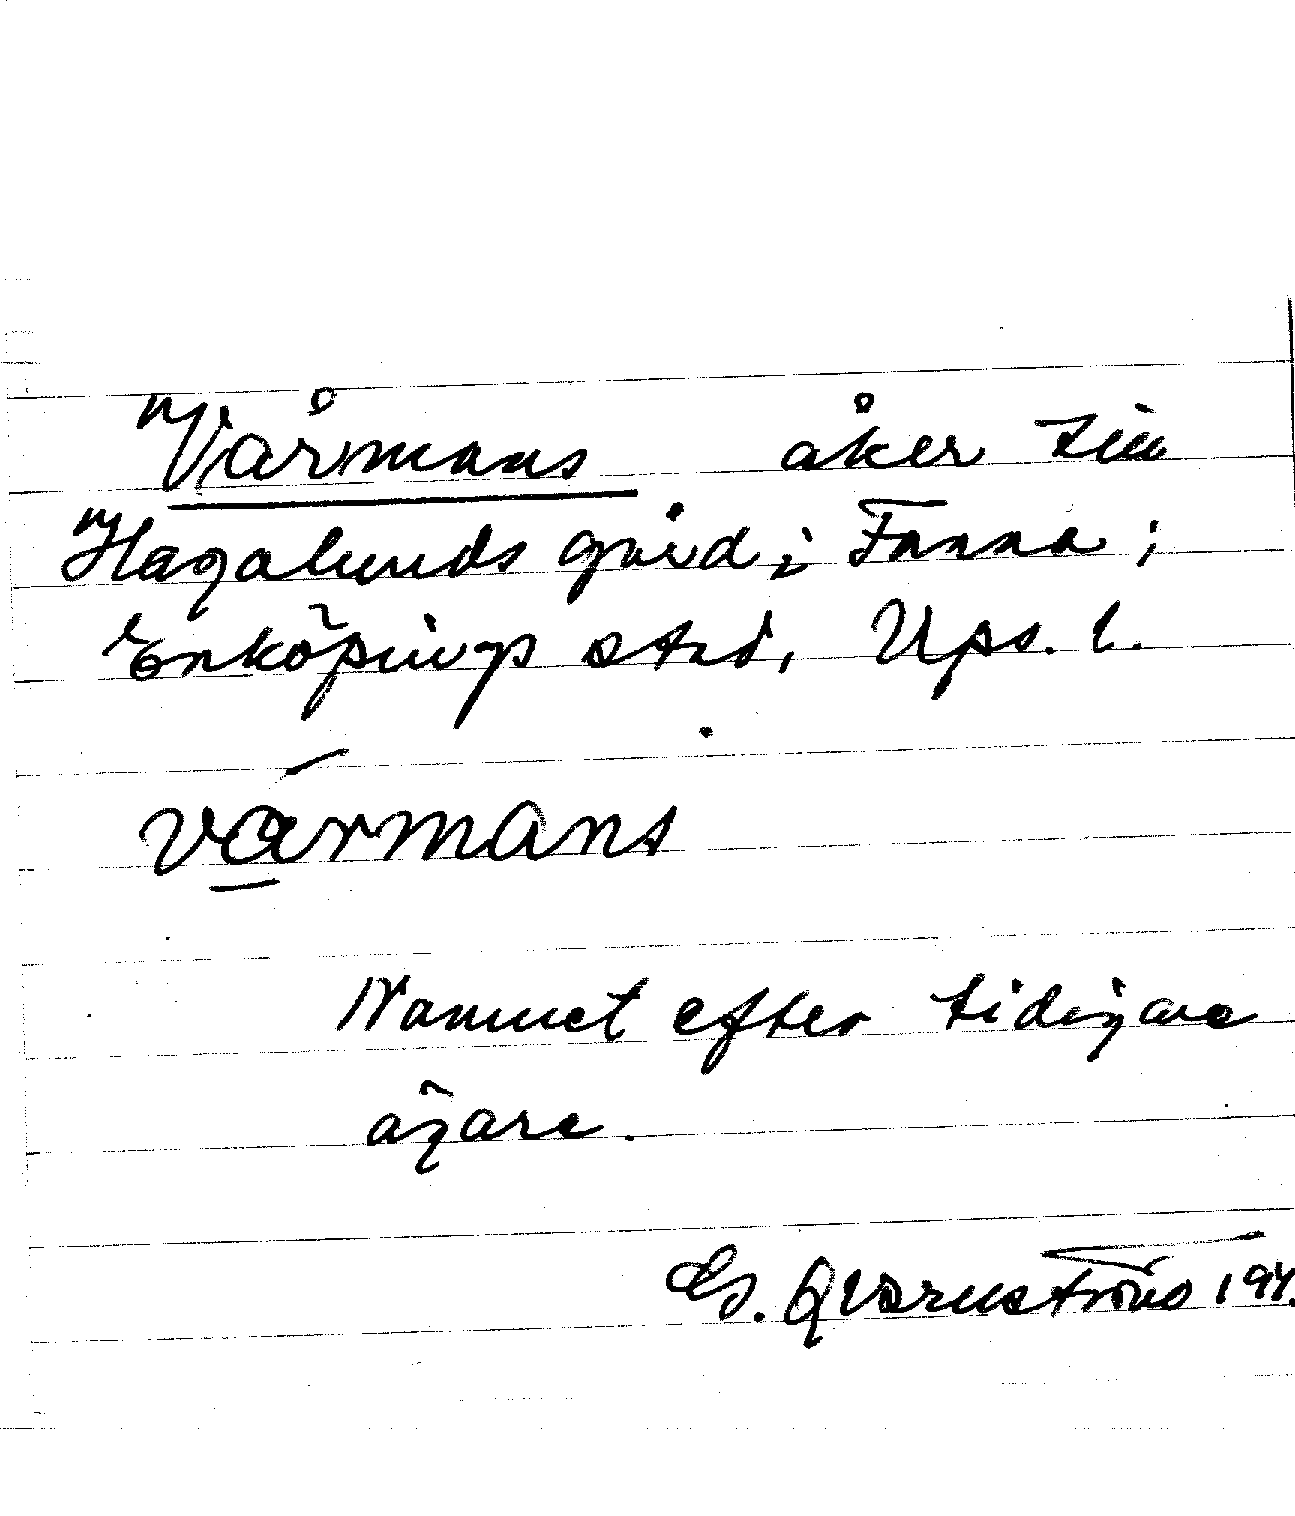 Vårmans åker till
Hagalunds gård i Fanna i
Enköpings stad, Ups. l.
vármans
Namnet efter tidigare
ägare.
G. Qvarnström 194